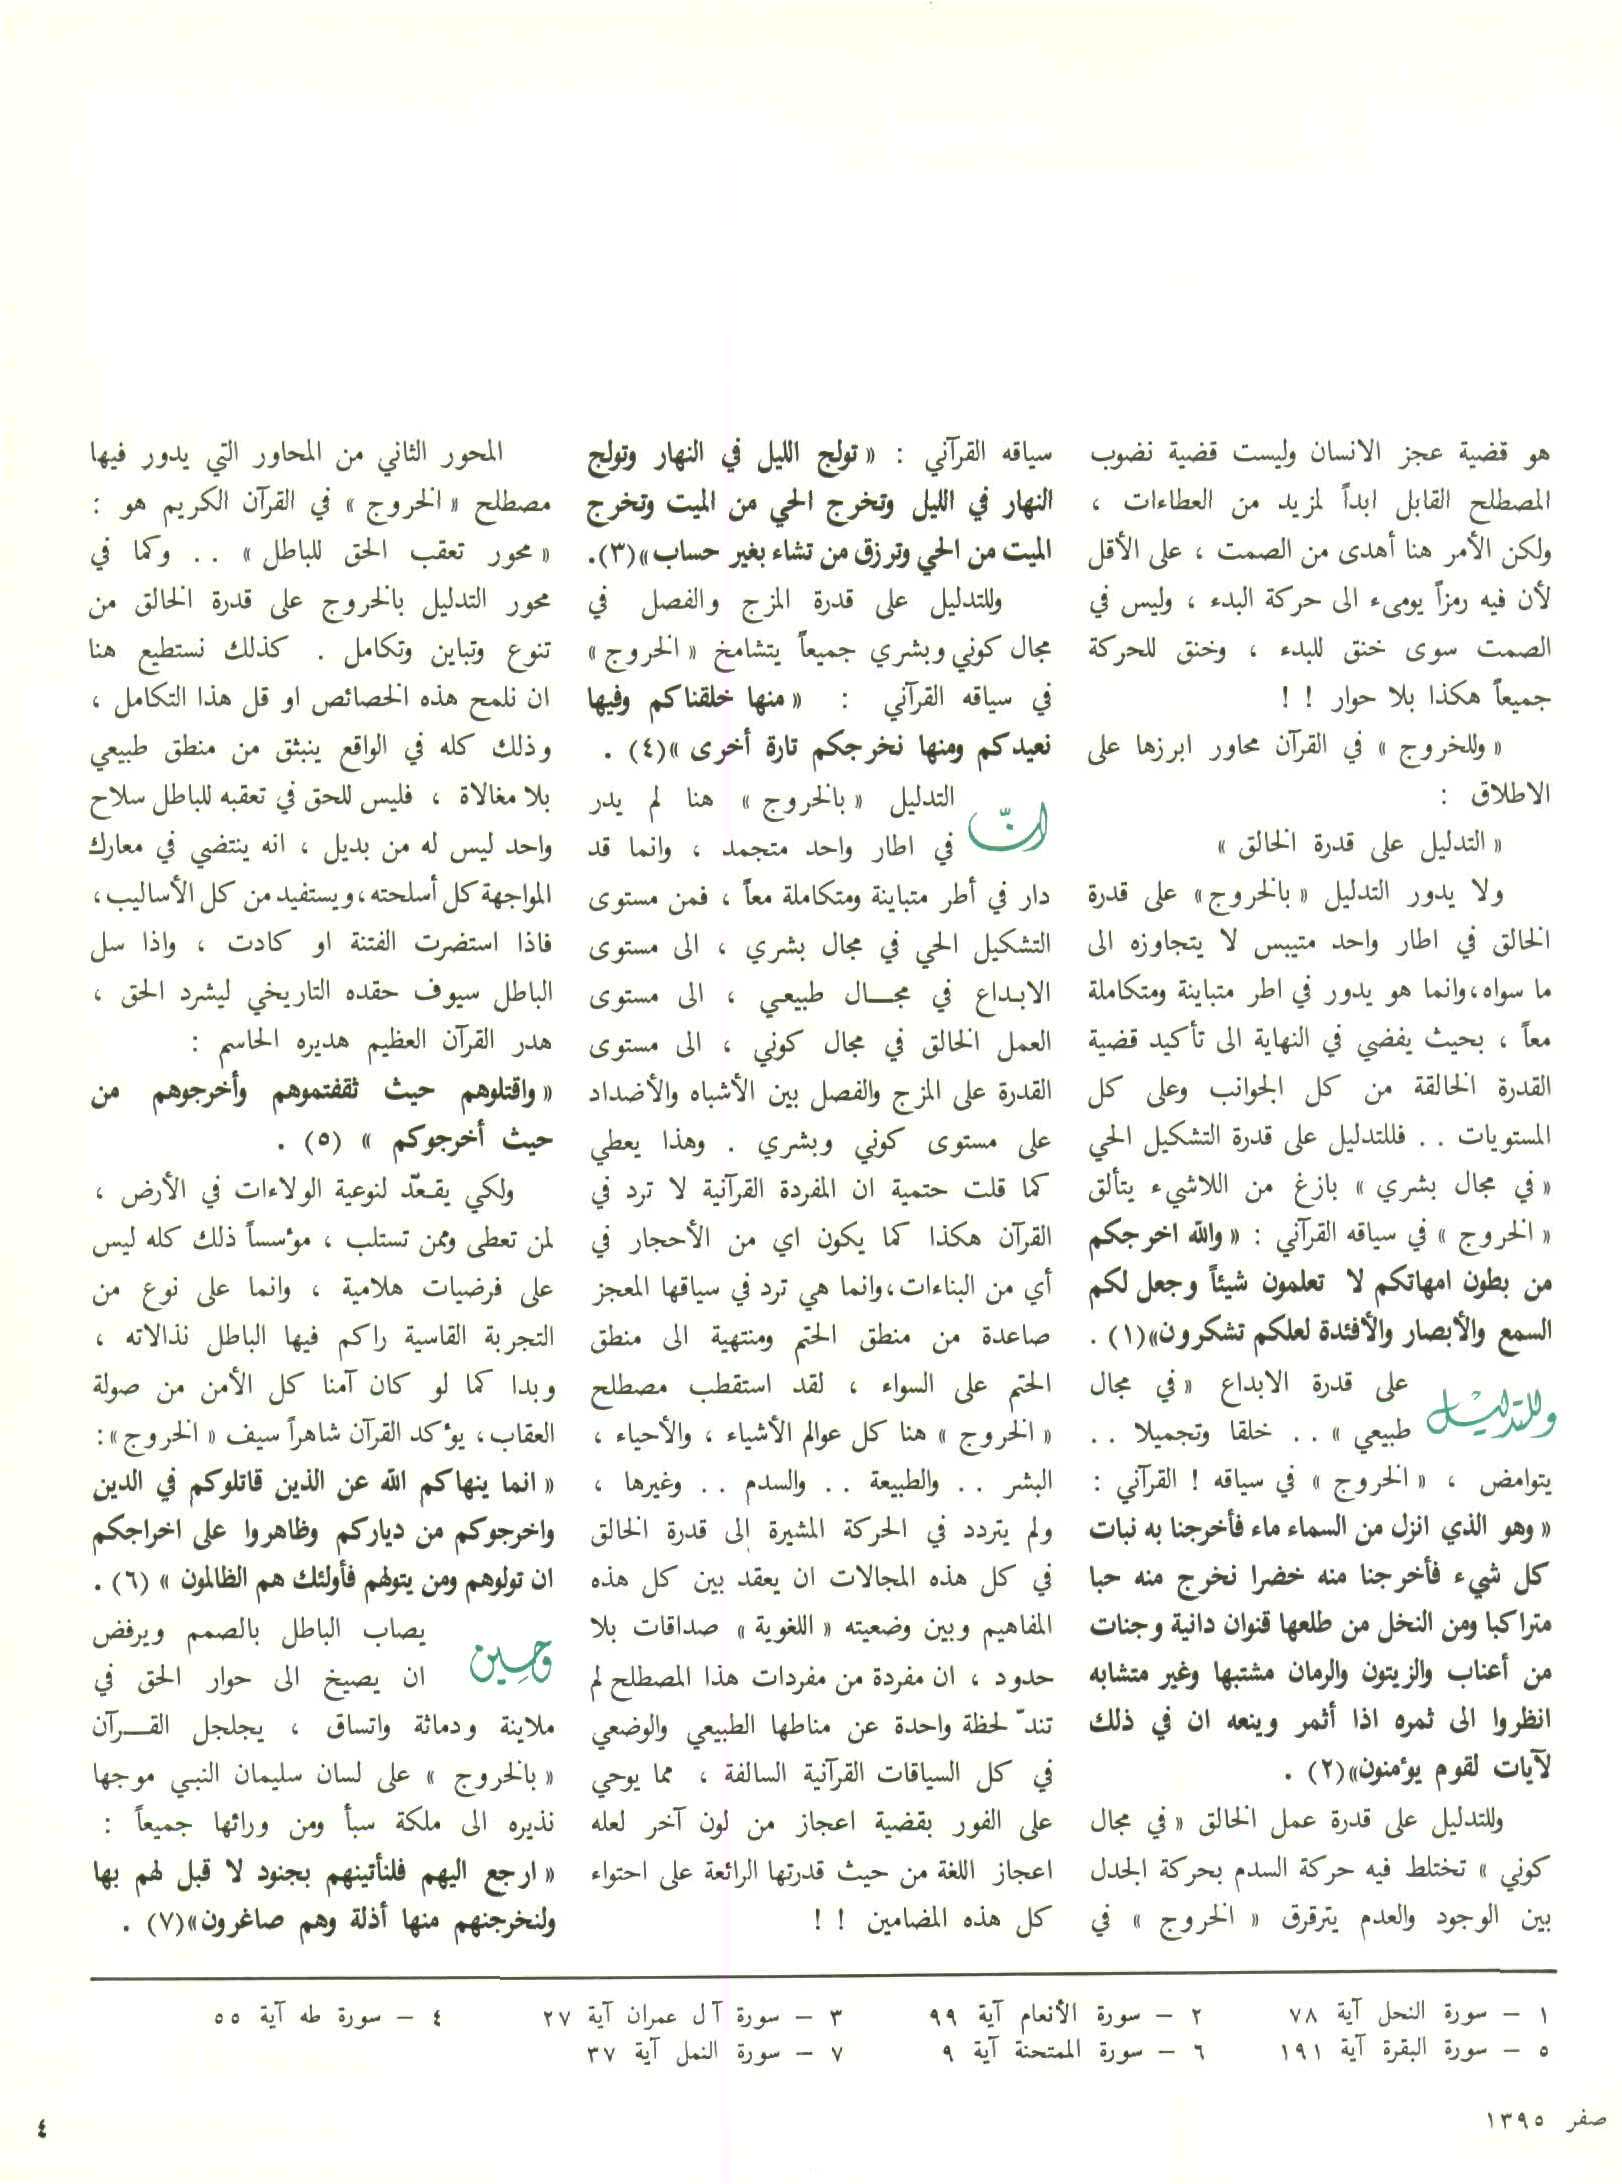 هو قضية عجز الانسان وليست قضية نضوب
المصطلح القابل ابداً لمزيد من العطاءات ،
ولكن الأمر هنا أهدى من الصمت ، على الأقل
لأن فيه رمزاً يومىء الى حركة البدء ، وليس في
الصمت سوى خنق للبدء ، وخنق للحركة
جميعاً هكذا بلا حوار ! !
« وللخروج » في القرآن محاور ابرزها على
الاطلاق :
« التدليل على قدرة الخالق »
ولا يدور التدليل « بالخروج » على قدرة
الخالق في اطار واحد متيبس لا يتجاوزه الى
ما سواه ، وانما هو يدور في اطر متباينة ومتكاملة
معاً ، بحيث يفضي في النهاية الى تأكيد قضية
القدرة الخالقة من كل الجوانب وعلى كل
المستويات . . فللتدليل على قدرة التشكيل الحي
« في مجال بشري » بازغ من اللاشيء يتألق
« الخروج » في سياقه القرآني : « والله اخرجكم
من بطون امهاتكم لا تعلمون شيئاً وجعل لكم
السمع والأبصار والأفئدة لعلكم تشكرون»(١) .
وللتدليل على قدرة الابداع « في مجال
طبيعي » . . خلقا وتجميلا . .
يتوامض ، « الخروج » في سياقه ! القرآني :
« وهو الذي انزل من السماء ماء فأخرجنا به نبات
كل شيء فأخرجنا منه خضرا نخرج منه حبا
متراكبا ومن النخل من طلعها قنوان دانية وجنات
من أعناب والزيتون والرمان مشتبها وغير متشابه
انظروا الى ثمره اذا أثمر وينعه ان في ذلك
لآيات لقوم يؤمنون»(٢) .
وللتدليل على قدرة عمل الخالق « في مجال
كوني » تختلط فيه حركة السدم بحركة الجدل
بين الوجود والعدم يترقرق « الخروج » في
سياقه القرآني : « تولج الليل في النهار وتولج
النهار في الليل وتخرج الحي من الميت وتخرج
الميت من الحي وترزق من تشاء بغير حساب»(٣).
وللتدليل على قدرة المزج والفصل في
مجال كوني وبشري جميعاً يتشامخ « الخروج »
في سياقه القرآني : « منها خلقناكم وفيها
نعيدكم ومنها نخرجكم تارة أخرى »(٤) .
انّ التدليل « بالخروج » هنا لم يدر
في اطار واحد متجمد ، وانما قد
دار في أطر متباينة ومتكاملة معاً ، فمن مستوى
التشكيل الحي في مجال بشري ، الى مستوى
الابداع في مجـال طبيعي ، الى مستوى
العمل الخالق في مجال كوني ، الى مستوى
القدرة على المزج والفصل بين الأشباه والأضداد
على مستوى كوني وبشري . وهذا يعطي
كما قلت حتمية ان المفردة القرآنية لا ترد في
القرآن هكذا كما يكون اي من الأحجار في
أي من البناءات ، وانما هي ترد في سياقها المعجز
صاعدة من منطق الحتم ومنتهية الى منطق
الحتم على السواء ، لقد استقطب مصطلح
« الخروج » هنا كل عوالم الأشياء ، والأحياء ،
البشر . . والطبيعة . . والسدم . . وغيرها ،
ولم يتردد في الحركة المشيرة إلى قدرة الخالق
في كل هذه المجالات ان يعقد بين كل هذه
المفاهيم وبين وضعيته « اللغوية » صداقات بلا
حدود ، ان مفردة من مفردات هذا المصطلح لم
تندّ لحظة واحدة عن مناطها الطبيعي والوضعي
في كل السياقات القرآنية السالفة ، مما يوحي
على الفور بقضية اعجاز من لون آخر لعله
اعجاز اللغة من حيث قدرتها الرائعة على احتواء
كل هذه المضامين ! !
المحور الثاني من المحاور التي يدور فيها
مصطلح « الخروج » في القرآن الكريم هو :
« محور تعقب الحق للباطل » . . وكما في
محور التدليل بالخروج على قدرة الخالق من
تنوع وتباين وتكامل . كذلك نستطيع هنا
ان نلمح هذه الخصائص او قل هذا التكامل ،
وذلك كله في الواقع ينبثق من منطق طبيعي
بلا مغالاة ، فليس للحق في تعقبه للباطل سلاح
واحد ليس له من بديل ، انه ينتضي في معارك
المواجهة كل أسلحته، ويستفيد من كل الأساليب،
فاذا استضرت الفتنة او كادت ، واذا سل
الباطل سيوف حقده التاريخي ليشرد الحق ،
هدر القرآن العظيم هديره الحاسم :
« واقتلوهم حيث ثقفتموهم وأخرجوهم من
حيث أخرجوكم » (٥) .
ولكي يقـعّد لنوعية الولاءات في الأرض ،
لمن تعطى وممن تستلب ، مؤسساً ذلك كله ليس
على فرضيات هلامية ، وانما على نوع من
التجربة القاسية راكم فيها الباطل نذالاته ،
وبدا كما لو كان آمنا كل الأمن من صولة
العقاب، يؤكد القرآن شاهراً سيف « الخروج »:
« انما ينهاكم الله عن الذين قاتلوكم في الدين
واخرجوكم من دياركم وظاهروا على اخراجكم
ان تولوهم ومن يتولهم فأولئك هم الظالمون » (٦) .
وحين يصاب الباطل بالصمم ويرفض
ان يصيخ الى حوار الحق في
ملاينة ودماثة واتساق ، يجلجل القــرآن
« بالخروج » على لسان سليمان النبي موجها
نذيره الى ملكة سبأ ومن ورائها جميعاً :
« ارجع اليهم فلنأتينهم بجنود لا قبل لهم بها
ولنخرجنهم منها أذلة وهم صاغرون»(٧) .
١ – سورة النحل آية ٧٨ ٢ – سورة الأنعام آية ٩٩ ٣ – سورة آل عمران آية ٢٧ ٤ – سورة طه آية ٥٥
٥ – سورة البقرة آية ١٩١ ٦ – سورة الممتحنة آية ٩ ٧ – سورة النمل آية ٣٧
صفر ١٣٩٥
٤